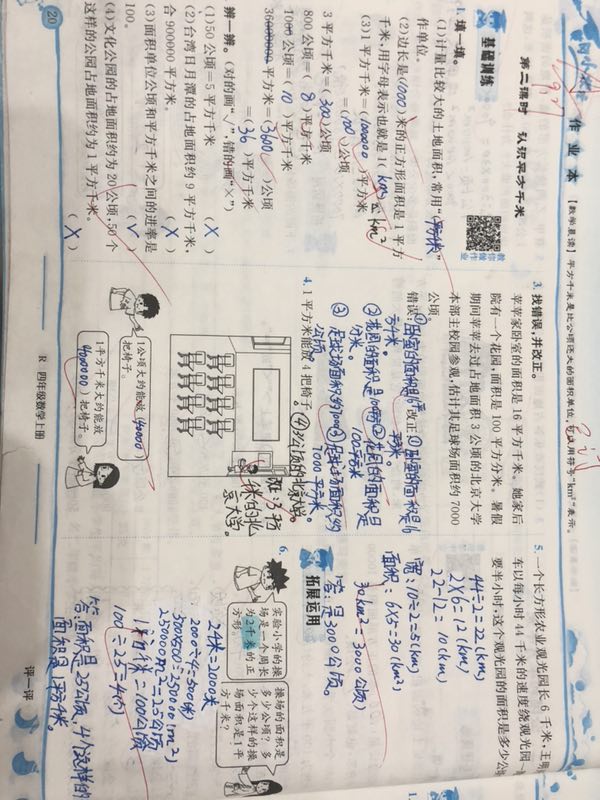 作业本
【教学导读】平方千米是比公顷还大的面积单位,可以用符号“km²”表示。
第二课时 认识平方千米
基础训练
教你做作业
1. 填一填。
(1)计量比较大的土地面积,常用“(平方千米)”
作单位。
(2)边长是(1000)米的正方形面积是1平方
千米,用字母表示也就是1(km²)。
km²
(3)1平方千米=(1000000)平方米
=(100)公顷
3平方千米=(300)公顷
800公顷=(8)平方千米
1000公顷=(10)平方千米
36000000平方米=(3600)公顷
=(36)平方千米
辨一辨。(对的画“√”,错的画“×”)
(1)50公顷=5平方千米 (X)
(2)台湾日月潭的占地面积约9平方千米,
合900000平方米。 (X)
(3)面积单位公顷和平方千米之间的进率是
100。 (√)
(4)文化公园的占地面积约为20公顷,50个
这样的公园占地面积约为1平方千米。 (X)
20
3. 找错误,并改正。
苹苹家卧室的面积是16平方千米。她家后
院有一个花园,面积是100平方分米。暑假
期间苹苹去过占地面积3公顷的北京大学
本部主校园参观,估计其足球场面积约7000
公顷。
错误:①卧室的面积是16
平方千米。
②花园的面积是100平方
分米。
③足球场面积约7000
公顷。
改正:①卧室的面积是16
平方米。
②花园的面积是
100平方米。
③足球场面积约
7000平方米。
④3公顷的北京大学。
改:3平方千
米的北
京大学。
4. 1平方米能放4把椅子
1公顷大约能放(40000)
把椅子。
1平方千米大约能放
(4000000)把椅子。
R·四年级数学上册
5. 一个长方形农业观光园长6千米,王明
车以每小时44千米的速度绕观光园一
要半小时,这个观光园的面积是多少公
44÷2=22(km)
2×6=12(km)
22-12=10(km)
宽:10÷2=5(km)
面积:6×5=30(km²)
30km²=3000公顷
答:是3000公顷。
拓展运用
6.
实验小学的操
场是一个周长
为2千米的正
方形。
操场的面积是
多少公顷?多
少个这样的操
场面积是1平
方千米?
2千米=2000米
2000÷4=500(米)
500×500=250000(m²)
250000m²=25公顷
1平方千米=100公顷
100÷25=4(个)
答:面积是25公顷,4个这样的
面积是1平方千米。
评一评